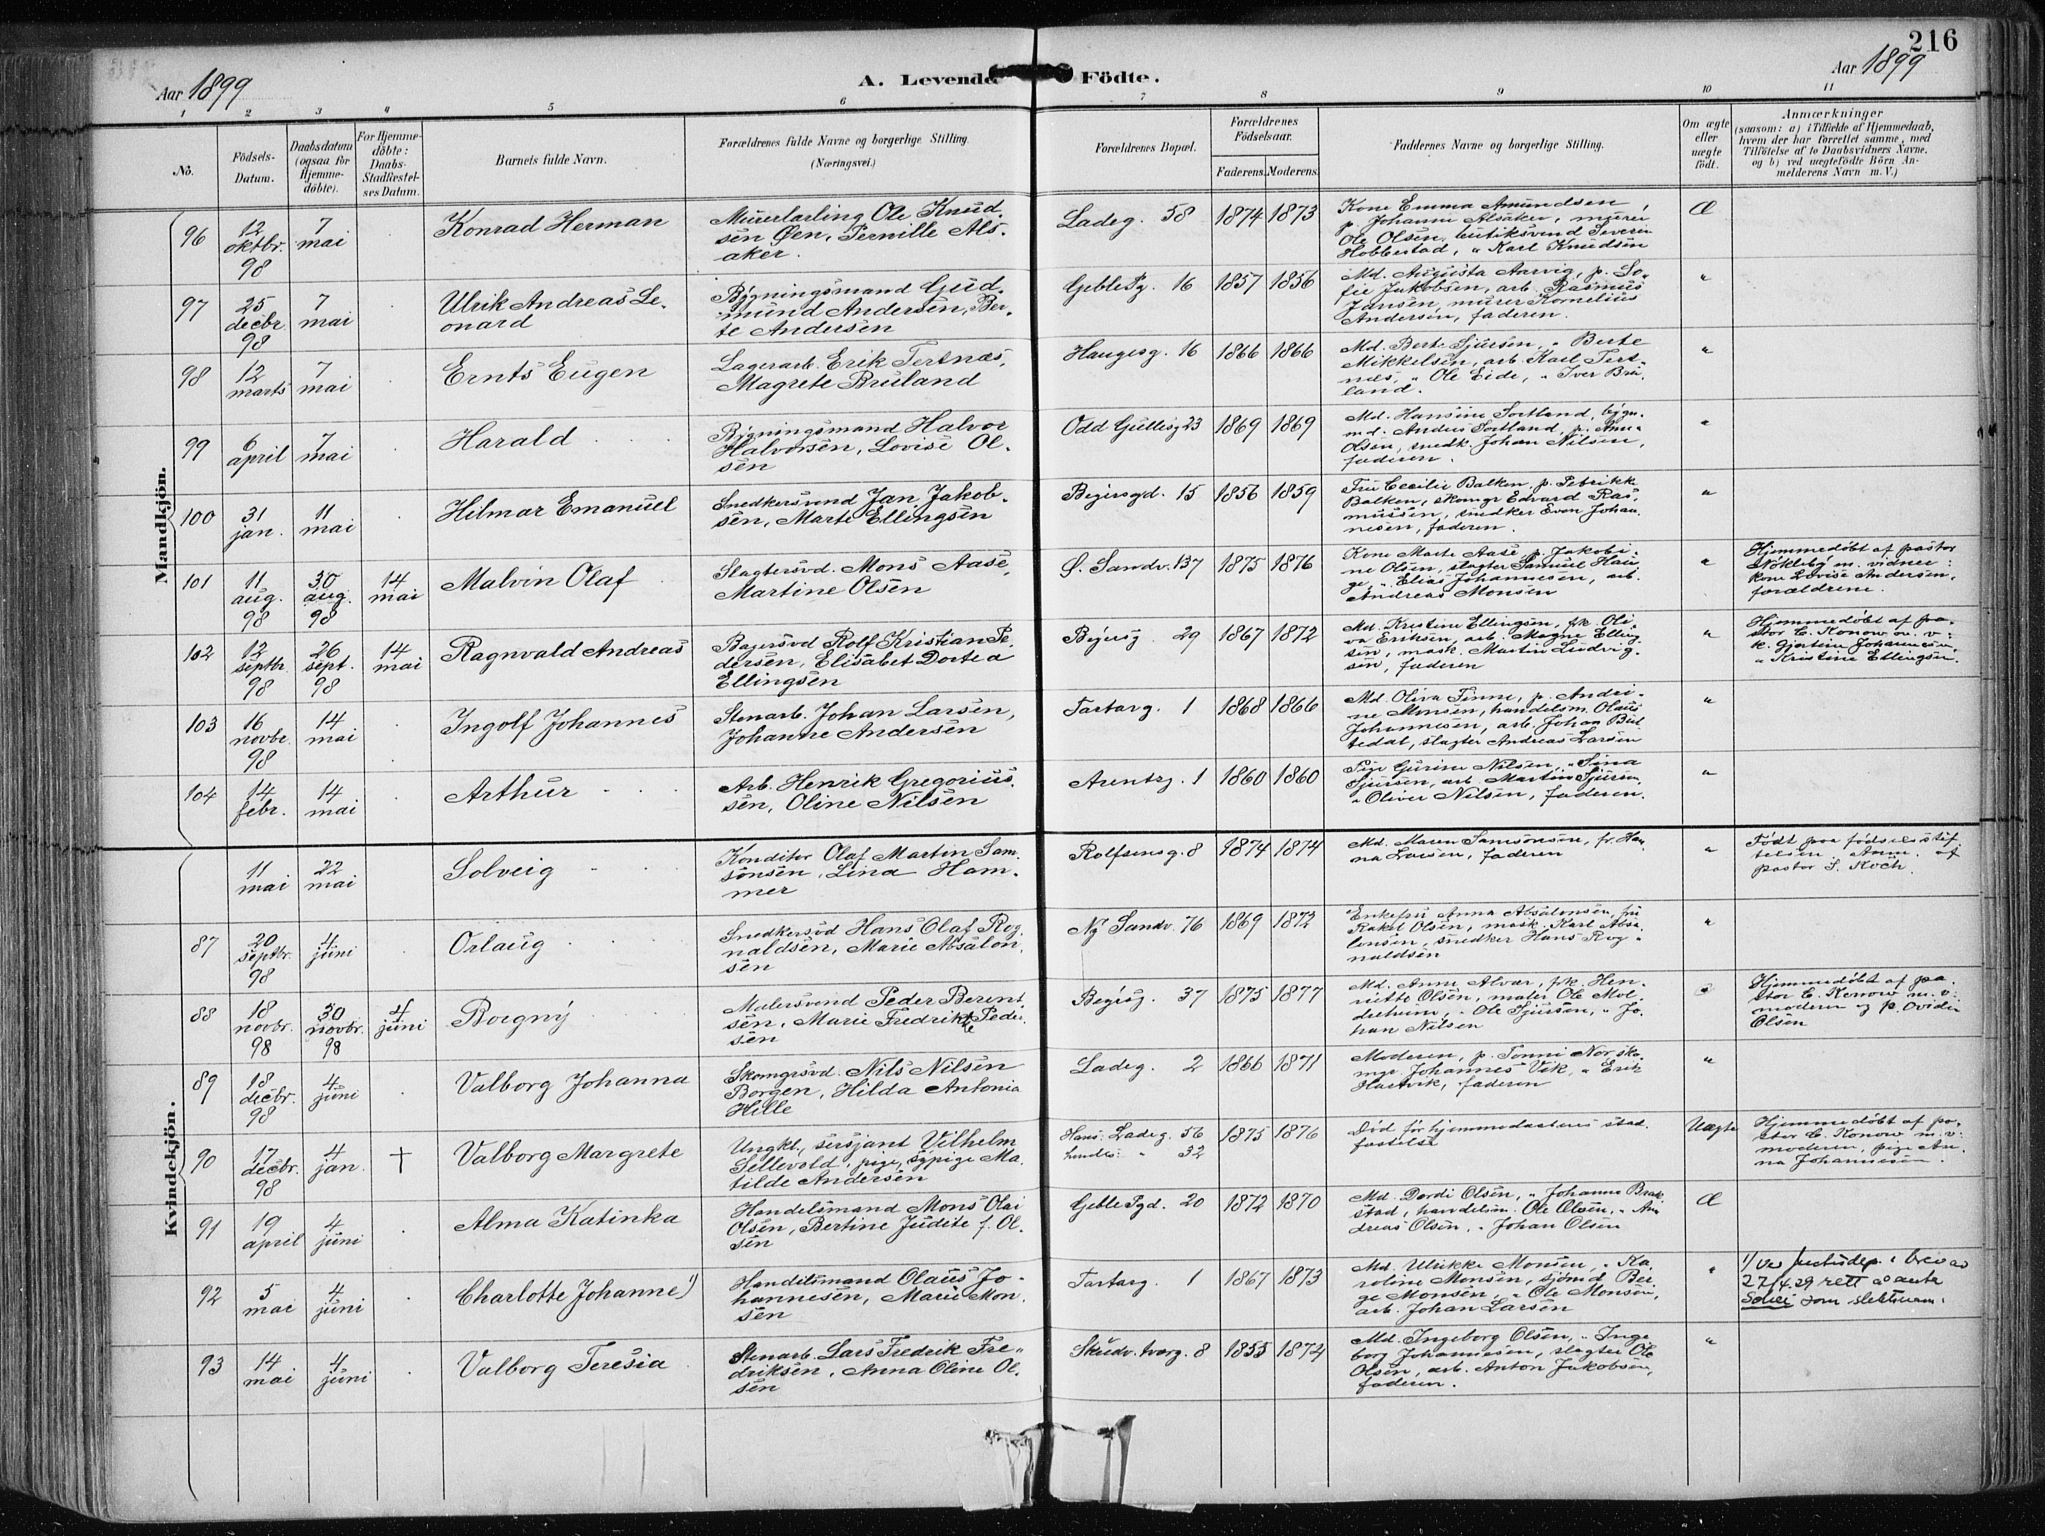 216
Aar 1899
A. Levende Födte.
Aar 1899
1 2 3 4 5 6 7 8 9 10 11
No.
Födsels-
Datum.
Daabsdatum
(ogsaa for
Hjemme-
döbte).
For Hjemme-
döbte:
Daabs-
Stadfæstel-
ses Datum.
Barnets fulde Navn.
Forældrenes fulde Navne og borgerlige Stilling.
(Næringsvei.)
Forældrenes Bopæl.
Forældrenes
Födselsaar.
Faderens. Moderens.
Faddernes Navne og borgerlige Stilling.
Om ægte
eller
uægte
födt.
Anmærkninger
(saasom: a) i Tilfælde af Hjemmedaab,
hvem der har forrettet samme, med
Tilföielse af to Daabsvidners Navne,
og b) ved uægtefödte Börn An-
melderens Navn m. V.)
Mandkjön.
96
12 oktbr. 98
7 mai
Konrad Herman
Murerlærling Ole Knud-
sen Øen, Pernille Als-
aker.
Ladeg. 58
1874 1873
Kone Emma Amundsen,
p. Johanne Alsaker, murer
Ole Olsen, butiksvend Severin
Hobbestad, " Karl Knudsen
Æ
97
25 decbr. 98
7 mai
Ulrik Andreas Le-
onard
Bygningsmand Gud-
mund Andersen, Ber-
te Andersen
Geble Pg. 16
1857 1856
Md. Augusta Aarvig, p. So-
fie Jakobsen, arb. Rasmus
Jansen, murer Kornelius
Andersen, faderen.
"
98
12 marts
7 mai
Ernts Eugen
Lagerarb. Erik Tertnæs,
Magrete Bruland
Haugesg. 16
1866 1866
Md. Berte Sjursen, " Berte
Mikkelsen, arb. Karl Tert-
næs, " Ole Eide, " Iver Bru-
land.
"
99
6 april
7 mai
Harald
Bygningsmand Halvor
Halvorsen, Lovise Ol-
sen
Odd Gjellesg 23
1869 1869
Md. Hansine Sortland, bygn.
md. Andres Sortland, p. Anna
Olsen, snedk. Johan Nilsen,
faderen.
"
100
31 jan.
11 mai
Hilmar Emanuel
Snedkersvend Jan Jakob-
sen, Marte Ellingsen
Bøiersgd. 15
1856 1859
Fru Cecilie Balken, p. Petrikke
Balken, skomgr Edvard Ras-
mussen, snedker Even Johan-
nesen, faderen.
"
101
11 aug. 98
30 aug. 98
14 mai
Malvin Olaf
Slagtersvd. Mons Aase,
Martine Olsen
Ø. Sandv. 137
1875 1876
Kone Marte Aase, p. Jakobi-
ne Olsen, slagter Samuel Hau-
ge, " Elias Johannesen, arb.
Andreas Monsen
"
Hjemmedøbt af pastor
Nøkleby m. vidner:
kone Lovise Andersen,
forældrene.
102
12 septbr. 98
26 sept. 98
14 mai
Ragnvald Andreas
Bagersvd Rolf Kristian Pe-
dersen, Elisabet Dortea
Ellingsen
Bøiersg. 29
1867 1872
Md. Kristine Ellingsen, frk. Oli-
va Eriksen, arb. Magne Elling-
sen, mask. Martin Ludvig-
sen, faderen
"
Hjemmedøbt af pa-
stor C. Konow m. v:
k. Gjertine Johannesen,
" Kristine Ellingsen.
103
16 novbr. 98
14 mai
Ingolf Johannes
Stenarb. Johan Larsen,
Johanne Andersen
Tartarg. 1
1868 1866
Md. Oliva Finne, p. Andri-
ne Monsen, handelsm. Olaus
Johannesen, arb. Johan Bir-
kedal, slagter Andreas Larsen
"
104
14 febr.
14 mai
Arthur
Arb. Henrik Gregorius-
sen, Oline Nilsen
Arentzg. 1
1860 1860
Pige Gurine Nilsen, " Sina
Sjursen, arb. Martin Sjursen,
" Oliver Nilsen, faderen.
"
Kvindekjön.
11 mai
22 mai
Solveig
Konditor Olaf Martin Sam-
sonsen, Lina Ham-
mer
Rolfsensg. 8
1874 1874
Md. Maren Samsonsen, fr. Han-
na Larsen, faderen
"
Født paa fødselsstif-
telsen. Anm. af
pastor S. Koch.
87
20 septbr. 98
4 juni
Oslaug
Snedkersvd Hans Olaf Rog-
naldsen, Marie Absalon-
sen
Ny Sandv. 76
1869 1872
Enkefru Anna Absalonsen, fru
Rakel Olsen, mask. Karl Absa-
lonsen, snedker Hans Rog-
naldsen
"
88
18 novbr. 98
30 novbr. 98
4 juni
Borgny
Malersvend Peder Berent-
sen, Marie Fredrikke Peder-
sen
Bøiersg. 37
1875 1877
Md. Anne Alvær, frk. Hen-
riette Olsen, maler Ole Mol-
drehum, " Ole Sjursen, " Jo-
han Nilsen
"
Hjemmedøbt af pa-
stor C. Konow m. v:
moderen og p. Ovidia
Olsen
89
18 decbr. 98
4 juni
Valborg Johanna
Skomgrsvd. Nils Nilsen
Borgen, Hilda Antonia
Hille
Ladeg. 2
1866 1871
Moderen, p. Tonni Nor, sko-
mgr. Johannes Vik, " Erik
Hartvik, faderen
"
90
17 decbr. 98
4 jan.
†
Valborg Margrete
Ungkl., sersjant Vilhelm
Sellevold, pige, sypige Ma-
tilde Andersen
Hans: Ladeg. 56
hendes: " 32
1875 1876
Død før hjemmedaabens stad-
fæstelse
Uægte
Hjemmedøbt af pa-
stor C. Konow m. v:
moderen, pige An-
na Johannesen.
91
19 april
4 juni
Alma Katinka
Handelsmand Mons Olai
Olsen, Bertine Judite f. Ol-
sen
Geble Pgd. 20
1872 1870
Md. Dordi Olsen, " Johanne Brak-
stad, handelsm. Ole Olsen, " An-
dreas Olsen, " Johan Olsen
Æ
92
5 mai
4 juni
Charlotte Johanne 1)
Handelsmand Olaus Jo-
hannesen, Marie Mon-
sen
Tartarg. 1
1867 1873
Md. Ulrikke Monsen, " Ka-
roline Monsen, sjømd Bør-
ge Monsen, " Ole Monsen,
arb. Johan Larsen
"
1/ Ved justisdep.s brev av
27/4.29 rett å anta
Solei som slektsnavn.
93
14 mai
4 juni
Valborg Teresia
Stenarb. Lars Fredrik Fre-
driksen, Anna Oline Ol-
sen
Skudv. tværg. 8
1855 1874
Md. Ingeborg Olsen, " Inge-
borg Johannesen, slagter Ole
Olsen, arb. Anton Jakobsen,
faderen.
"